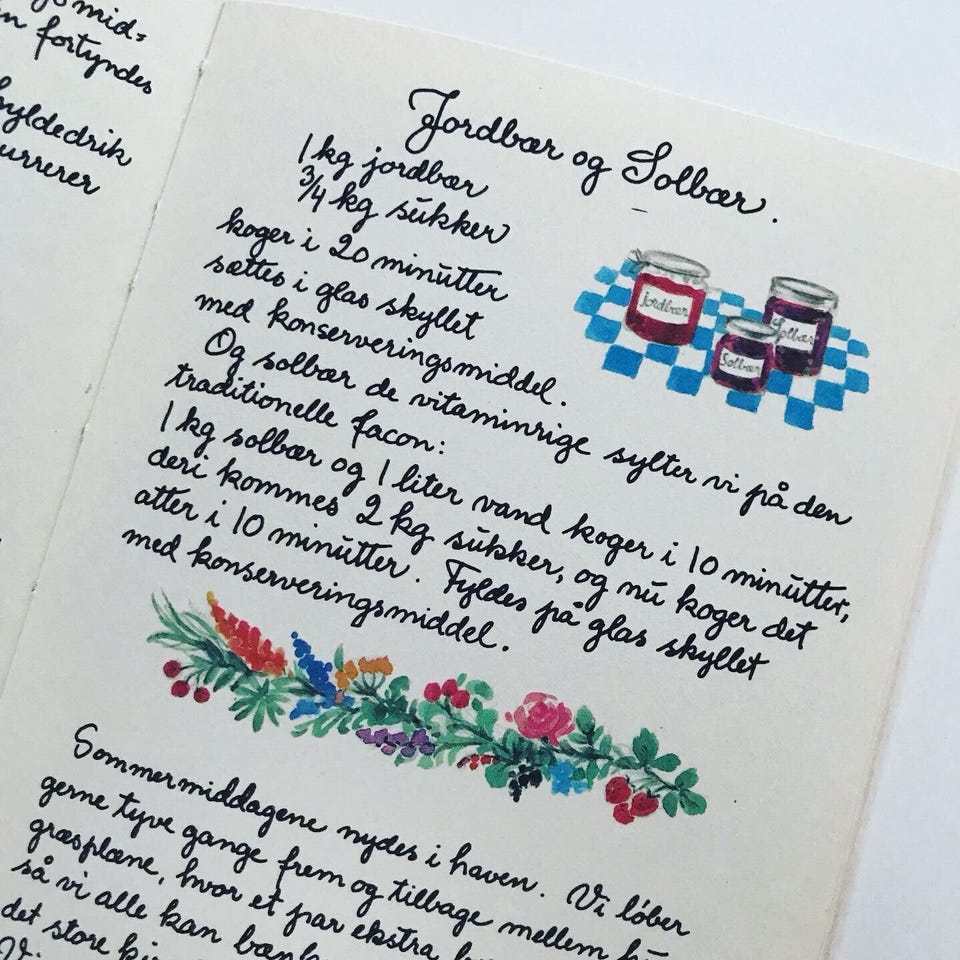 fortyndes
Jordbær og Solbær.
1 kg jordbær
3/4 kg sukker
koger i 20 minutter
sættes i glas skyllet
med konserveringsmiddel.
Og solbær de vitaminrige sylter vi på den
traditionelle facon:
1 kg solbær og 1 liter vand koger i 10 minutter,
deri kommes 2 kg sukker, og nu koger det
atter i 10 minutter. Fyldes på glas skyllet
med konserveringsmiddel.
jordbær
Solbær
Solbær
Sommermiddagene nydes i haven. Vi løber
gerne tyve gange frem og tilbage mellem
græsplæne, hvor et par ekstra
så vi alle kan
det store
Vi